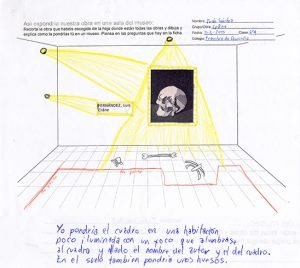 Así expondría nuestra obra en una sala del museo:
Recorta la obra que habéis escogido de la hoja donde están todas las obras y dibuja y
explica como la pondrías tú en un museo. Piensa en las preguntas que hay en la ficha
Nombre:
Grupo-Obra:
Fecha:
Clase:
Colegio:
FERNÁNDEZ, Luis
Cráne
Yo pondría el cuadro en una habitación
poco iluminada con un foco que alumbrase
al cuadro y al lado el nombre del autor y el del cuadro.
En el suelo también pondría unos huesos.